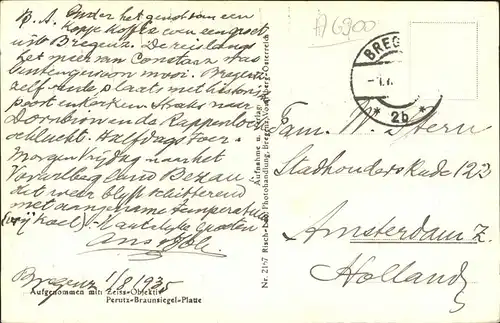 B. A. Onder het genot van een
kopje koffie even een groet
uit Bregenz. De reis langs
het meer van Constanz was
buitengewoon mooi. Bregenz
zelf oude plaats met historie
poort en kerken. Straks naar
Dornbirn en de Rappenloch
schlucht. Halfdags Toer.
Morgen Vrijdag naar het
Vorarlberg land Bezau.
dat weer blijft schitterend
met aangename temperatuur
(vrij koel). Hartelijke groeten
Bregenz 1/8/1935
Aufgenommen mit: Zeiss-Objektiv
Perutz-Braunsiegel-Platte
Nr. 2167 Risch-Lau, Photohandlung, Bregenz, Vorarlberg-Österreich
Aufnahme u. Verlag
A 6900
BREG
* 2b *
Fam. W. Stern
Stadhouderskade 123
Amsterdam Z.
Holland